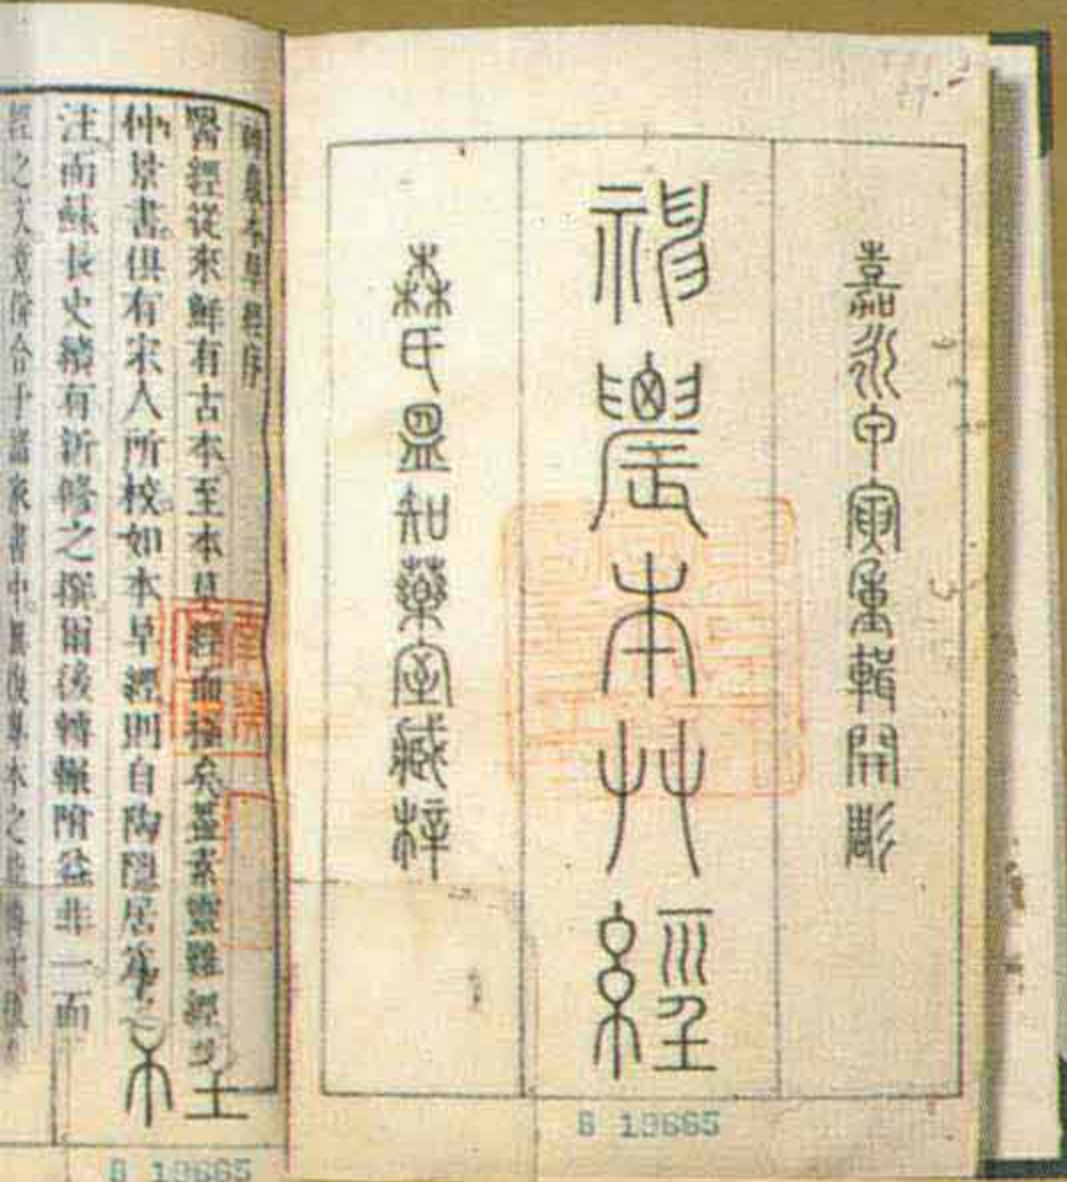 嘉永甲寅重輯開彫
神農本艸經
森氏溫知藥室藏梓
B 19665
神農本草經序
醫經從來鮮有古本至本草經而極矣蓋素靈難經
仲景書俱有宋人所校如本草經則自陶隱居
注而蘇長史續有新修之撰爾後轉輾附益非一而
經之文竟併合于諸家書中無復專本之
B 19665